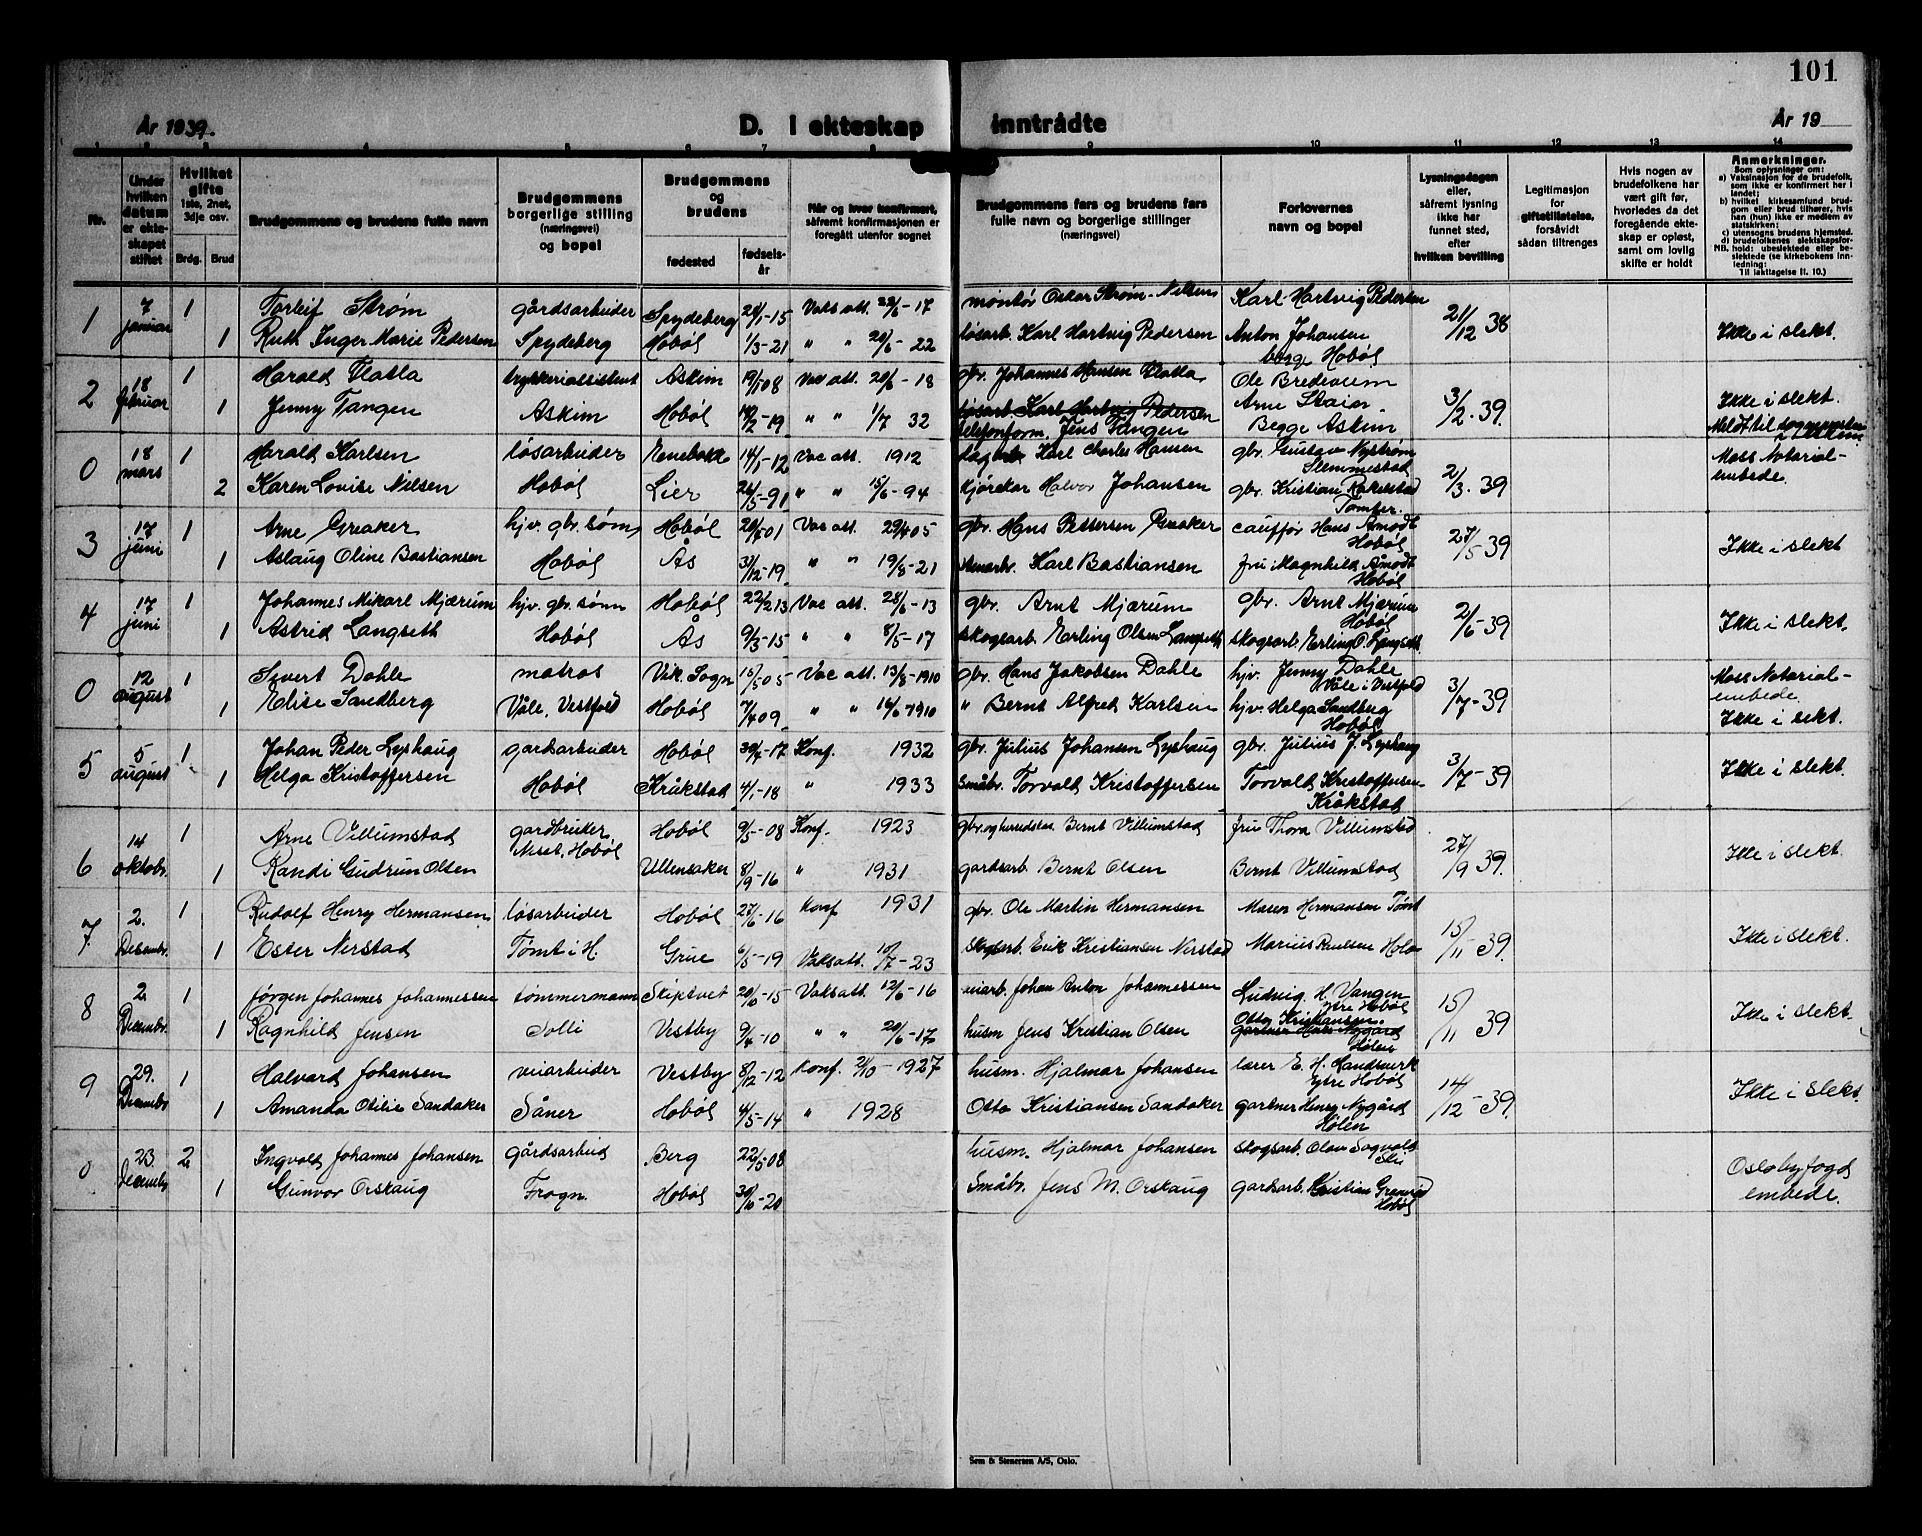 101
År 1939.
D. I ekteskap inntrådte
År 19
1 2 3 4 5 6 7 8 9 10 11 12 13 14
Nr.
Under hvilken datum er ekteskapet stiftet
Hvilket gifte 1ste, 2net, 3dje osv.
Brdg. Brud
Brudgommens og brudens fulle navn
Brudgommens borgerlige stilling (næringsvei) og bopel
Brudgommens og brudens
fødested
fødselsår
Når og hvor konfirmert, såfremt konfirmasjonen er foregått utenfor sognet
Brudgommens fars og brudens fars fulle navn og borgerlige stillinger (næringsvei)
Forlovernes navn og bopel
Lysningsdagen eller, såfremt lysning ikke har funnet sted, efter hvilken bevilling
Legitimasjon for giftetillatelse, forsåvidt sådan tiltrenges
Hvis nogen av brudefolkene har vært gift før, hvorledes da det foregående ekteskap er opløst, samt om lovlig skifte er holdt
Anmerkninger.
Som oplysninger om:
a) Vaksinasjon for de brudefolk, som ikke er konfirmert her i landet;
b) hvilket kirkesamfund brudgom eller brud tilhører, hvis han (hun) ikke er medlem av statskirken;
c) utensogns brudens hjemsted.
d) brudefolkenes slektskapsforhold: ubeslektede eller beslektede (se kirkebokens innledning:
NB. Til iakttagelse ll. 10.)
1 7 januar 1 Torleif Strøm gårdsarbeider Spydeberg 28/1-15 Vaks att. 22/6-17 montør Oskar Strøm-Nilsen Karl Hartvig Pedersen 21/12 38
1 Ruth Inger Marie Pedersen Spydeberg Hobøl 1/3-21 " " 20/6-22 løsarb. Karl Hartvig Pedersen Anton Johansen begge Hobøl Ikke i slekt.
2 18 februar 1 Harald Flatla trykkeriassistent Askim 19/5 08 Vac att. 20/6-18 gbr. Johannes Hansen Flatla Ole Bredevum 3/2-39
1 Jenny Tangen Askim Hobøl 18/2-19 " " 1/7 32 løsarb Karl Hartvig Pedersen telefonform. Jens Tangen Arne Skaier Begge Askim Ikke i slekt. Meldt til sogneprsten i Askim
0 18 mars 1 Harald Karlsen løsarbeider Nenebakk 14/1-12 Vac att. 1912 Karl Charles Hansen gbr. Gustav Nystrøm Slemmestad 2/3-39
2 Karen Lovise Nilsen Hobøl Lier 26/5-91 " " 15/6-94 kjørekar Halvor Johansen gbr. Kristian Rakelstad Tomter. Moss Notarial-embede.
3 17 juni 1 Arne Greaker hjv. gbr. sønn Hobøl 20/7 01 Vac att. 29/4 05 gbr. Hans Pettersen Greaker cauffør Hans Åmodt Hobøl 27/5-39
1 Aslaug Oline Bastiansen Hobøl Ås 31/12-19 " " 19/8-21 stenarbr. Karl Bastiansen fru Magnhild Åmodt Hobøl Ikke i slekt
4 17 juni 1 Johannes Mikael Mjærum hjv. gbr. sønn Hobøl 22/2 13 Vac att. 28/6-13 gbr. Arnt Mjærum gbr. Arnt Mjærum Hobøl 2/6-39
1 Astrid Langseth Hobøl Ås 9/3-15 " " 8/5-17 skogsarb. Erling Olsen Langseth skogsarb. Erling O. Langseth Ikke i slekt.
0 12 august 1 Sivert Dahle matros Vik. Sogn 15/5 05 Vac att. 13/8-1910 gbr. Hans Jakobsen Dahle hjv. Jenny Dahle Våle i Vestfold 3/7-39 Moss Notarial-embede.
1 Elise Sandberg Våle, Vestfold Hobøl 7/4 09 " " 16/6 1910 " Bernt Alfred Karlsen hjv. Helga Sandberg Hobøl Ikke i slekt.
5 5 august 1 Johan Peder Lyshaug gardsarbeider Hobøl 30/4-17 Konf. 1932 gbr. Julius Johansen Lyshaug gbr. Julius J. Lyshaug 3/7-39
1 Helga Kristoffersen Hobøl Kråkstad 4/1-18 " 1933 Småbr. Torvald Kristoffersen Torvald Kristoffersen Kråkstad Ikke i slekt.
6 14 oktobr. 1 Arne Villumstad gardbruker Neset, Hobøl Hobøl 9/5-08 Konf. 1923 gbr. og herredskas. Bernt Villumstad fru Thora Villumstad 27/9 39.
1 Randi Gudrun Olsen Ullensaker 8/9-16 " 1931 gardsarb. Bernt Olsen Bernt Villumstad Ikke i slekt.
7 2. Desembr. 1 Rudolf Henry Hermansen løsarbeider Hobøl 27/6-16 Konf 1931 gbr. Ole Martin Hermansen Maren Hermansen Tømt 15/11-39.
1 Ester Nerstad Tømt i H. Grue 6/5-19 Vaksatt. 10/7-23 skogsarb. Erik Kristiansen Nerstad Marius Paulsen Ikke i slekt.
8 2. Decembr. 1 Jørgen Johannes Johannessen tømmermann Skiptvet 20/10-15 Vaksatt. 12/6-16 veiarb. Johan Anton Johannessen Ludvig H. Vangen Ytre Hobøl 15/11 39
1 Ragnhild Jensen Solli Vestby 9/4-10 " " 20/6-17 husm Jens Kristian Olsen Otto Kristiansen gartner Henry Nygård Hølen Ikke i slekt.
9 29. Decembr 1 Halvard Johansen veiarbeider Vestby 8/12-12 Konf. 2/10-1927 husm. Hjalmar Johansen lærer E. H. Handverk Ytre Hobøl 14/12-39.
1 Amanda Otilie Sandaker Såner Hobøl 4/5-14 " 1928 Otto Kristiansen Sandaker gartner Henry Nygård Hølen Ikke i slekt.
0 23. Decembr 2 Ingvald Johannes Johansen gårdsarbeid Berg 22/5-08 husm. Hjalmar Johansen skogsarb. Olav Sagvold Ski Oslo byfogd embede.
1 Gunvor Orskaug Frogn. Hobøl 30/10-20 Småbr. Jens M. Orskaug gardsarb. Kristian Hobøl
Sem & Stenersen A/S, Oslo.